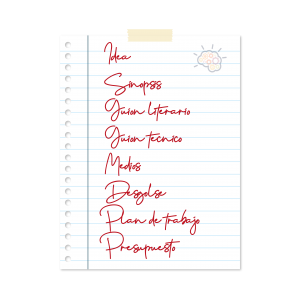 Idea
Sinopsis
Guion literario
Guion tecnico
Medios
Desglse
Plan de trabajo
Presupuesto